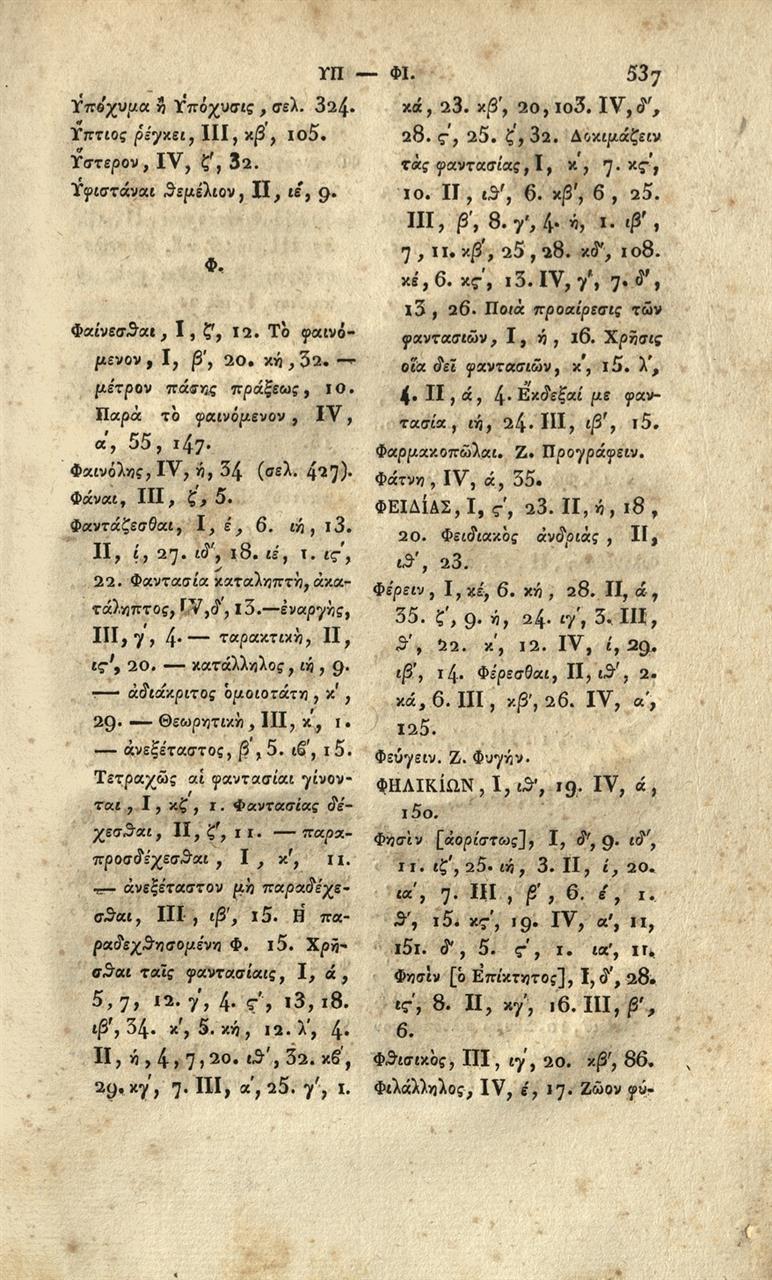 ΥΠ — ΦΙ. 537
Ὑπόχυμα ἢ Ὑπόχυσις, σελ. 324.
Ὕπτιος ῥέγκει, III, κβ', 105.
Ὕστερον, IV, ζ', 32.
Ὑφιστάναι θεμέλιον, II, ιέ, 9.
Φ.
Φαίνεσθαι, I, ζ', 12. Τὸ φαινό-
μενον, I, β', 20. κή, 32. —
μέτρον πάσης πράξεως, 10.
Παρὰ τὸ φαινόμενον, IV,
ά, 55, 147.
Φαινόλης, IV, ή, 34 (σελ. 427).
Φάναι, III, ζ', 5.
Φαντάζεσθαι, I, έ, 6. ιή, 13.
II, ί, 27. ιδ', 18. ιέ, 1. ις',
22. Φαντασία καταληπτὴ, ἀκα-
τάληπτος, IV, δ', 13.—ἐναργὴς,
III, γ', 4.— ταρακτικὴ, II,
ις', 20. — κατάλληλος, ιή, 9.
— ἀδιάκριτος ὁμοιοτάτη, κ',
29. — Θεωρητικὴ, III, κ', 1.
— ἀνεξέταστος, β', 5. ιβ', 15.
Τετραχῶς αἱ φαντασίαι γίνον-
ται, I, κζ', 1. Φαντασίας δέ-
χεσθαι, II, ζ', 11. — παρα-
προσδέχεσθαι, I, κ', 11.
— ἀνεξέταστον μὴ παραδέχε-
σθαι, III, ιβ', 15. Ἡ πα-
ραδεχθησομένη Φ. 15. Χρῆ-
σθαι ταῖς φαντασίαις, I, ά,
5, 7, 12. γ', 4. ς', 13, 18.
ιβ', 34. κ', 5. κή, 12. λ', 4.
II, ή, 4, 7, 20. ιθ', 32. κβ',
29. κγ', 7. III, ά, 25. γ', 1.
κά, 23. κβ', 20, 103. IV, δ',
28. ς', 25. ζ', 32. Δοκιμάζειν
τὰς φαντασίας, I, κ', 7. κς',
10. II, ιθ', 6. κβ', 6, 25.
III, β', 8. γ', 4. ή, 1. ιβ',
7, 11. κβ', 25, 28. κδ', 108.
κέ, 6. κς', 13. IV, γ', 7. δ',
13, 26. Ποιὰ προαίρεσις τῶν
φαντασιῶν, I, ή, 16. Χρῆσις
οἵα δεῖ φαντασιῶν, κ', 15. λ',
4. II, ά, 4. Ἔκδεξαί με φαν-
τασία, ιή, 24. III, ιβ', 15.
Φαρμακοπῶλαι. Ζ. Προγράφειν.
Φάτνη, IV, ά, 35.
ΦΕΙΔΙΑΣ, I, ς', 23. II, ή, 18,
20. Φειδιακὸς ἀνδριὰς, II,
ιθ', 23.
Φέρειν, I, κέ, 6. κή, 28. II, ά,
35. ζ', 9. ή, 24. ιγ', 3. III,
θ', 22. κ', 12. IV, ί, 29.
ιβ', 14. Φέρεσθαι, II, ιθ', 2.
κά, 6. III, κβ', 26. IV, ά,
125.
Φεύγειν. Ζ. Φυγήν.
ΦΗΛΙΚΊΩΝ, I, ιθ', 19. IV, ά,
150.
Φησὶν [ἀορίστως], I, δ', 9. ιδ',
11. ιζ', 25. ιή, 3. II, ί, 20.
ιά, 7. III, β', 6. έ, 1.
θ', 15. κς', 19. IV, ά, 11,
151. δ', 5. ς', 1. ιά, 11.
Φησὶν [ὁ Ἐπίκτητος], I, δ', 28.
ις', 8. II, κγ', 16. III, β',
6.
Φθισικὸς, III, ιγ', 20. κβ', 86.
Φιλάλληλος, IV, έ, 17. Ζῶον φύ-